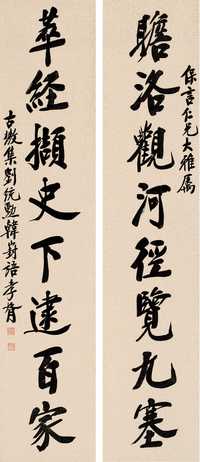 保言仁兄大雅屬
瞻洛觀河徑覽九塞
萃經擷史下逮百家
古微集劉統勳韓對語孝胥